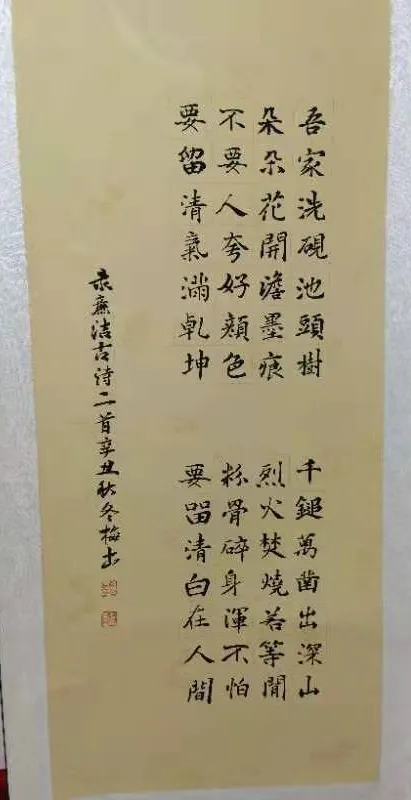 吾家洗硯池頭樹
朵朵花開澹墨痕
不要人夸好顏色
要留清氣滿乾坤
千鎚萬凿出深山
烈火焚燒若等閒
粉骨碎身渾不怕
要留清白在人間
录廉洁古诗二首辛丑秋冬梅书